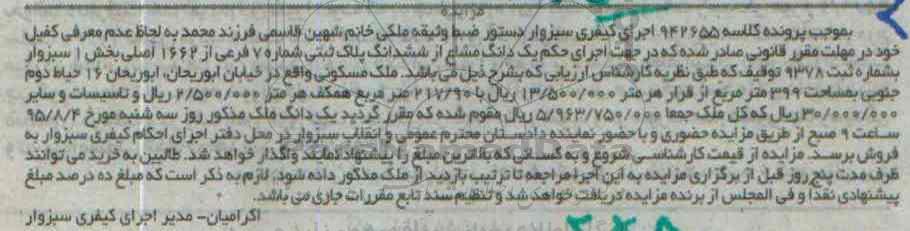 مزایده
بموجب پرونده کلاسه ۹۴۲۶۵۵ اجرای کیفری سبزوار دستور ضبط وثیقه ملکی خانم شهین قاسمی فرزند محمد به لحاظ عدم معرفی کفیل
خود در مهلت مقرر قانونی صادر شده که در جهت اجرای حکم یک دانگ مشاع از ششدانگ پلاک ثبتی شماره ۷ فرعی از ۱۶۶۲ اصلی بخش ۱ سبزوار
بشماره ثبت ۹۳۷۸ توقیف که طبق نظریه کارشناس ارزیابی که بشرح ذیل می باشد. ملک مسکونی واقع در خیابان ابوریحان، ابوریحان ۱۶ حیاط دوم
جنوبی بمساحت ۳۹۹ متر مربع از قرار هر متر ۱۳/۵۰۰/۰۰۰ ریال با ۲۱۷/۹۰ متر مربع همکف هر متر ۲/۵۰۰/۰۰۰ ریال و تاسیسات و سایر
۳۰/۰۰۰/۰۰۰ ریال که کل ملک جمعا ۵/۹۶۳/۷۵۰/۰۰۰ ریال مقوم شده که مقرر گردید یک دانگ ملک مذکور روز سه شنبه مورخ ۹۵/۸/۴
ساعت ۹ صبح از طریق مزایده حضوری و با حضور نماینده دادستان محترم عمومی و انقلاب سبزوار در محل دفتر اجرای احکام کیفری سبزوار به
فروش برسد. مزایده از قیمت کارشناسی شروع و به کسانی که بالاترین مبلغ را پیشنهاد نمایند واگذار خواهد شد. طالبین به خرید می توانند
ظرف مدت پنج روز قبل از برگزاری مزایده به این اجرا مراجعه تا ترتیب بازدید از ملک مذکور داده شود. لازم به ذکر است که مبلغ ده درصد مبلغ
پیشنهادی نقدا و فی المجلس از برنده مزایده دریافت خواهد شد و تنظیم سند تابع مقررات جاری می باشد.
اکرامیان- مدیر اجرای کیفری سبزوار